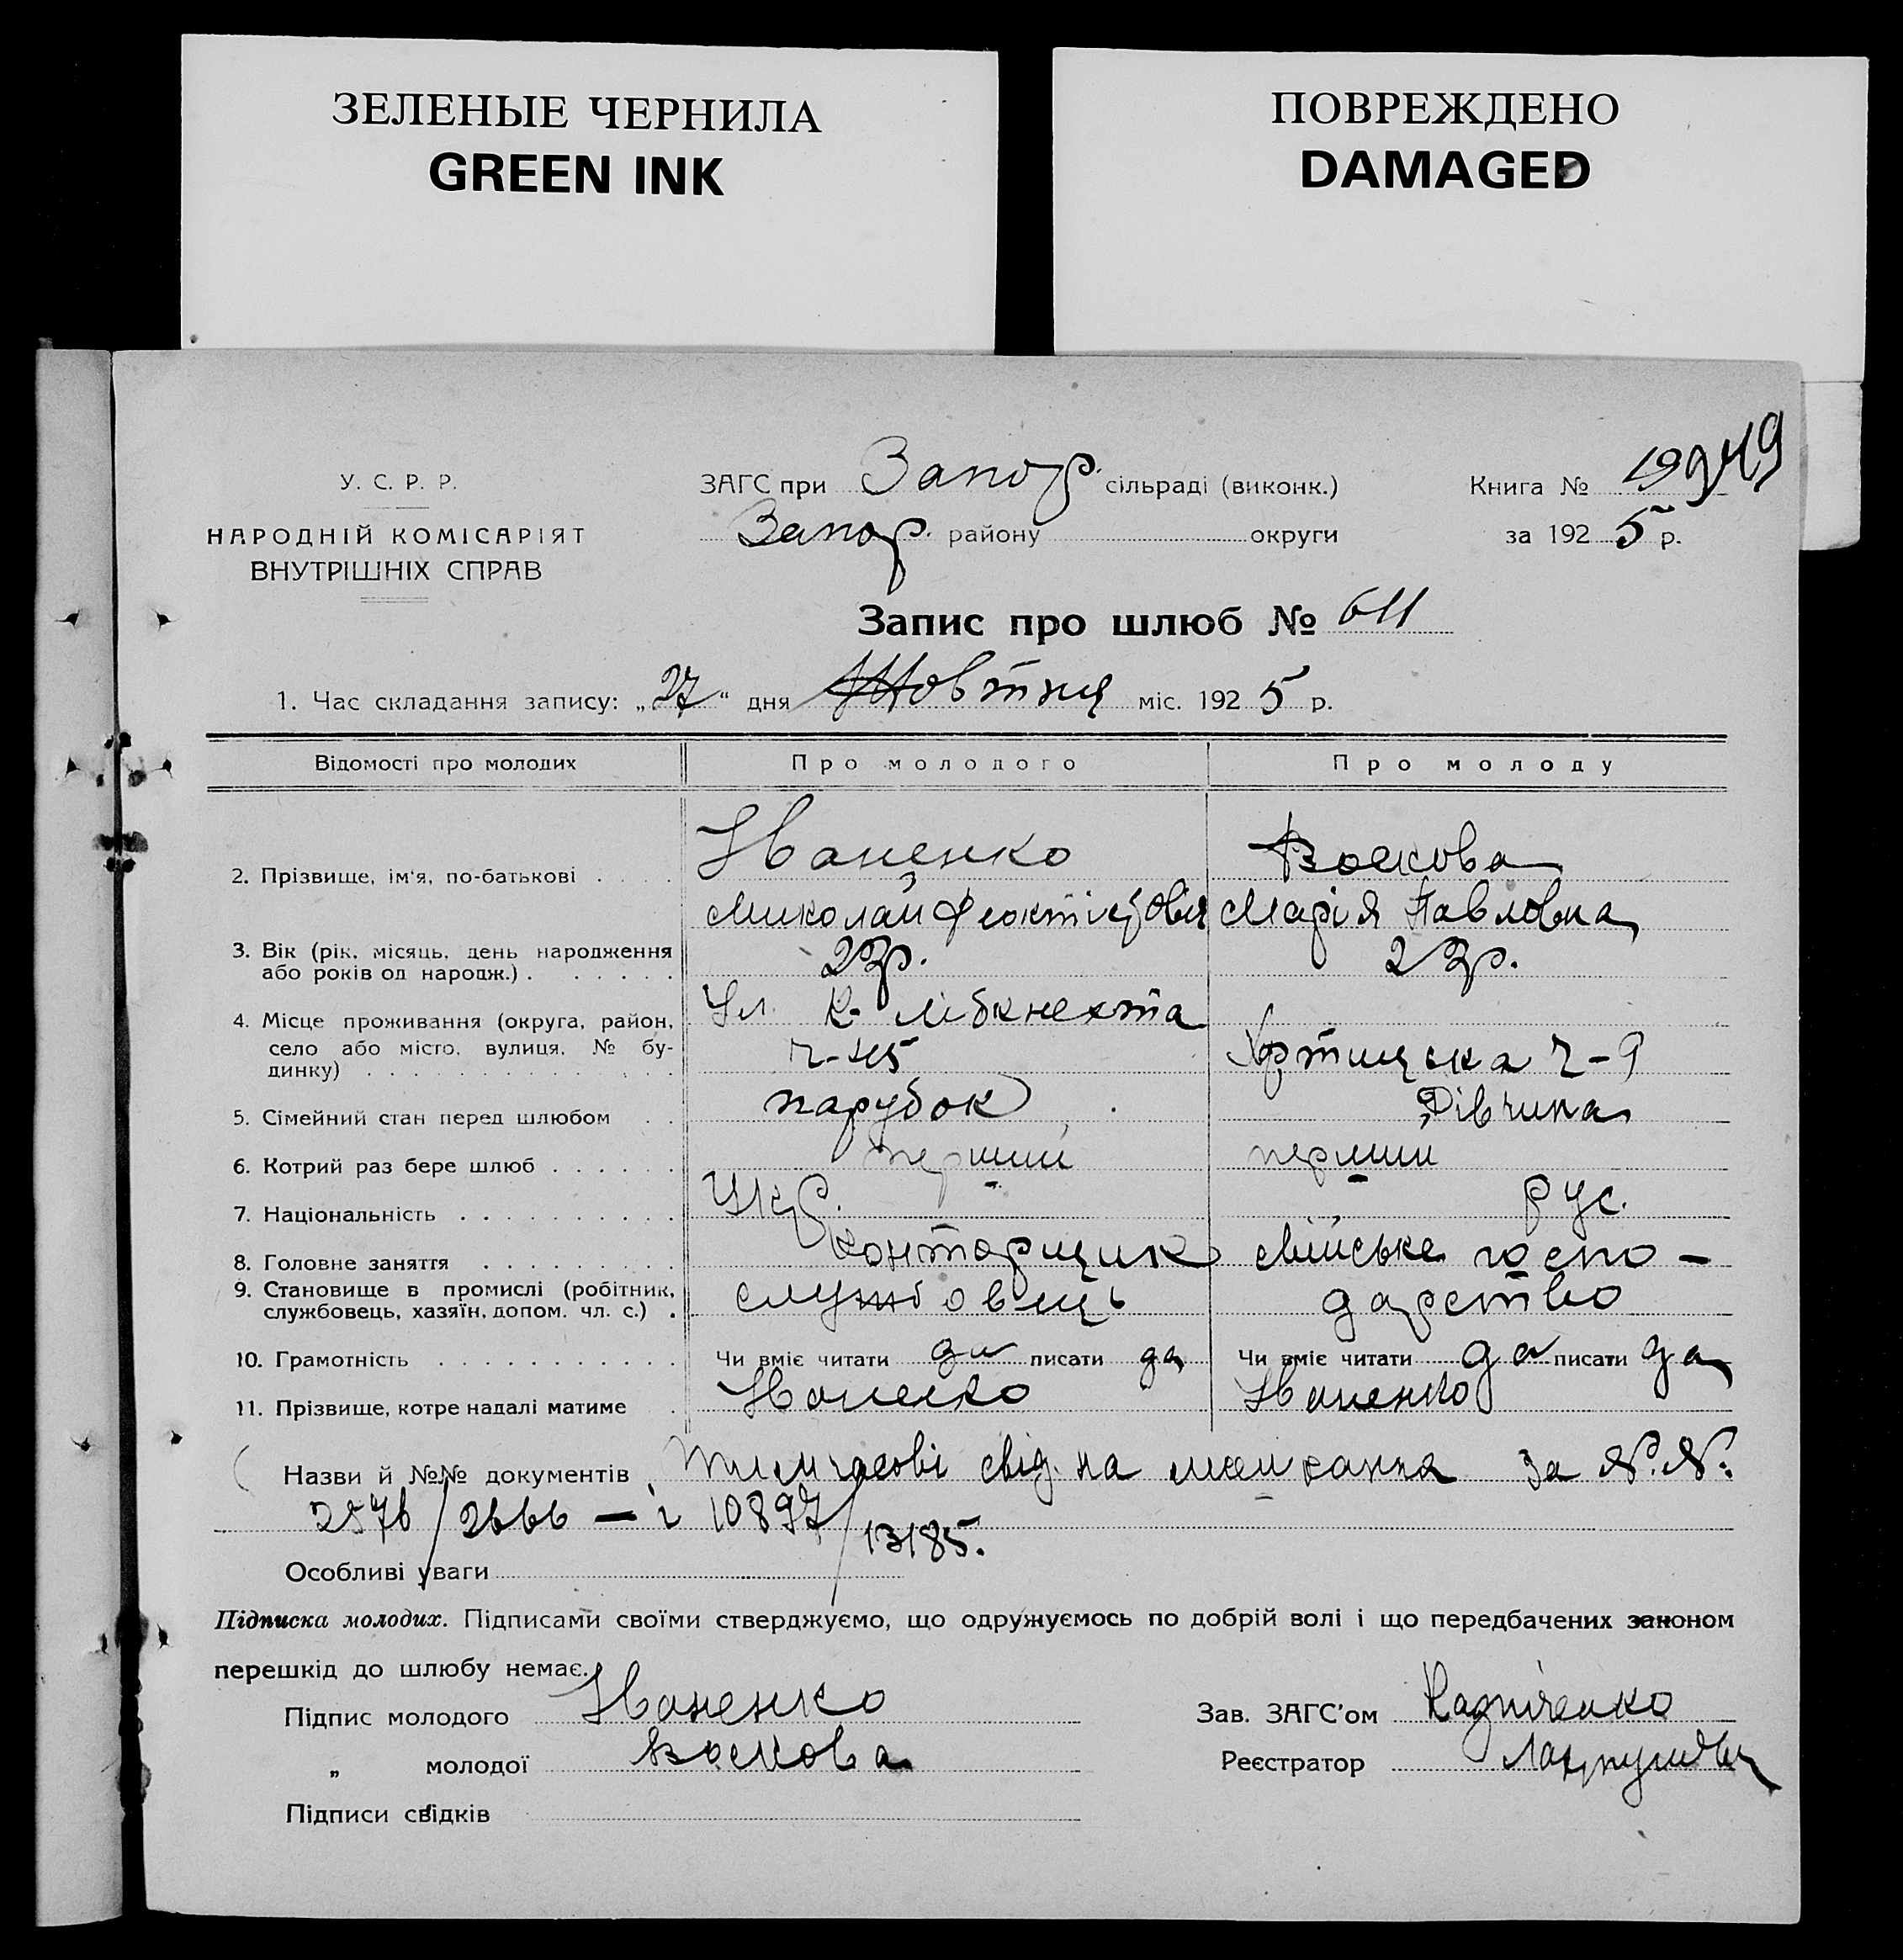 ЗЕЛЕНЫЕ ЧЕРНИЛА
GREEN INK
ПОВРЕЖДЕНО
DAMAGED
У. С. Р. Р.
НАРОДНІЙ КОМІСАРІЯТ
ВНУТРІШНІХ СПРАВ
ЗАГС при Запор. сільраді (виконк.)
Запор. району округи
Книга №
за 1925 р.
Запис про шлюб № 611
1. Час складання запису: „27“ дня Жовтня міс. 1925 р.
Відомості про молодих Про молодого Про молоду
2. Прізвище, ім'я, по-батькові . . . . Іваненко Воскова
Миколай Марія Павловна
3. Вік (рік, місяць, день народження 23р. 23р.
або років од народж.) . . . . . .
4. Місце проживання (округа, район, Ул. К. Лібкнехта
село або місто, вулиця, № бу- ч-45 Хортицька ч-9
динку) . . . . . . . . . . . .
5. Сімейний стан перед шлюбом . . парубок Дівчина
6. Котрий раз бере шлюб . . . . . . перший перший
7. Національність . . . . . . . . . . Укр. рус.
8. Головне заняття . . . . . . . . . конторщик мійське госпо-
9. Становище в промислі (робітник, службовець дарство
службовець, хазяїн, допом. чл. с.) .
10. Грамотність . . . . . . . . . . . Чи вміє читати да писати да Чи вміє читати да писати да
11. Прізвище, котре надалі матиме . Іваненко Іваненко
Назви й №№ документів тимчасові свід. на мешкання за №.№.
2576/2666 — і 10897/13185.
Особливі уваги
Підписка молодих. Підписами своїми стверджуємо, що одружуємось по добрій волі і що передбачених законом
перешкід до шлюбу немає.
Підпис молодого Іваненко Зав. ЗАГС'ом
„ молодої Воскова Реєстратор
Підписи свідків